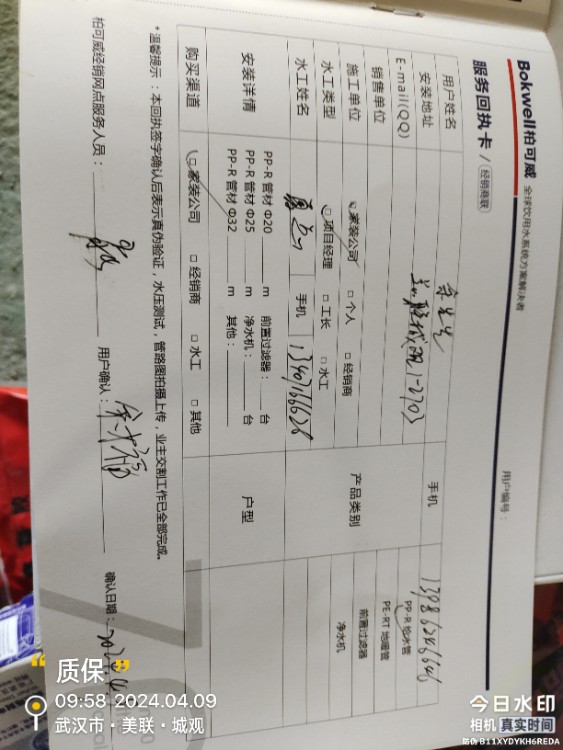 Bokwell柏可威 全球饮用水系统方案解决者
服务回执卡 / 经销商联
用户编号：
用户姓名 余先生 手机 13986246646
安装地址 1-2703 产品类别 PP-R 给水管
E-mail(QQ) PE-RT 地暖管
销售单位 前置过滤器
施工单位 家装公司 □ 个人 □ 经销商 净水机
水工类型 项目经理 □ 工长 □ 水工
水工姓名 手机 13407166628
安装详情 PP-R 管材 Φ20 m 前置过滤器： 台 户型
PP-R 管材 Φ25 m 净水机： 台
PP-R 管材 Φ32 m 其他：
购买渠道 □ 家装公司 □ 经销商 □ 水工 □ 其他
* 温馨提示：本回执签字确认后表示真伪验证，水压测试，管路图拍摄上传，业主交割工作已全部完成。
柏可威经销网点服务人员： 用户确认： 确认日期：2024.4
质保
09:58 2024.04.09
武汉市·美联·城观
今日水印
相机 真实时间
防伪 B11XYDYKH6REDA